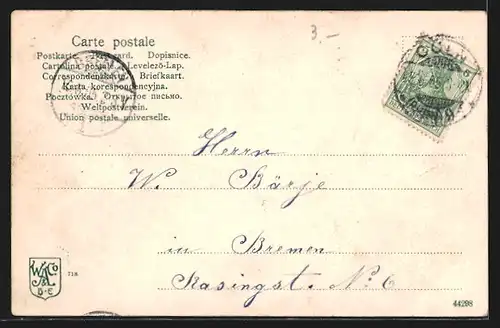 3.-
Carte postale
Postkarte. Postcard. Dopisnice.
Cartolina postale. Levelező-Lap.
Correspondenzkarte. Briefkaart.
Karta korespondencyjna.
Pocztówka. Открытое письмо.
Weltpostverein.
Union postale universelle.
CÖLN
Herrn
W. Bärje
in Bremen
No. 6
718
44298